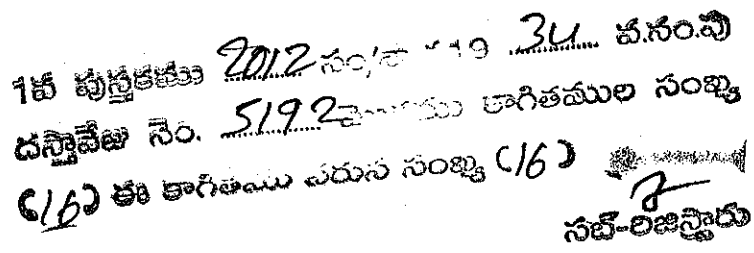 1వ పుస్తకము 2012 సం/శా 19 34 వ.సం.పు
దస్తావేజు నెం. 5192 కాగితముల సంఖ్య
(16) ఈ కాగితము వరుస సంఖ్య (16)
సబ్-రిజిస్ట్రారు